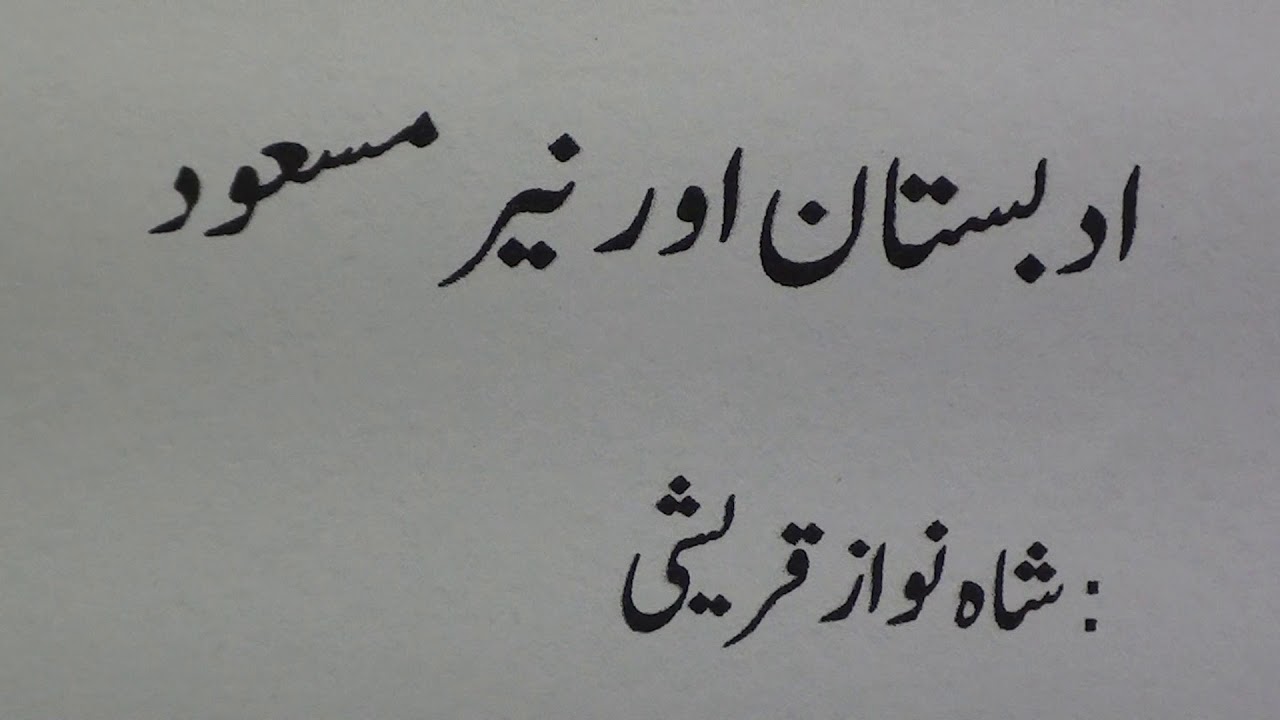 ادبستان اور نیر مسعود
: شاہ نواز قریشی